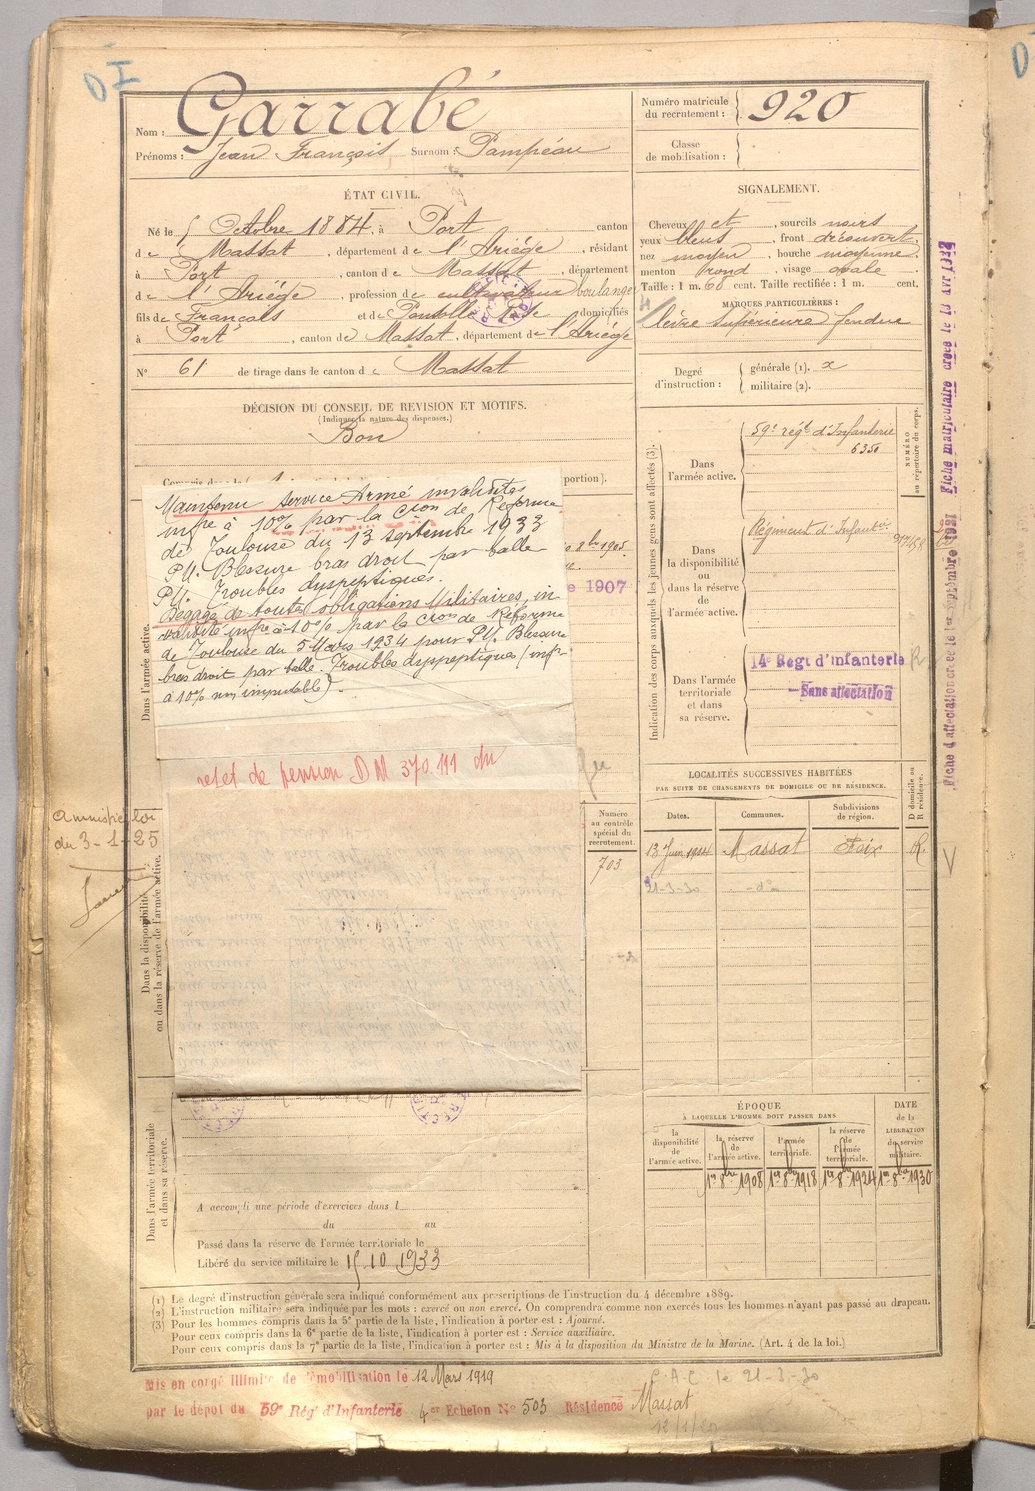 DI
Nom : Garrabé
Prénoms : Jean François Surnom : Pampéau
Numéro matricule du recrutement : 920
Classe de mobilisation :
ÉTAT CIVIL.
Né le 5 Octobre 1884, à Port canton
de Massat, département de l'Ariège, résidant
à Port, canton de Massat, département
de l'Ariège, profession de cultivateur boulanger
fils de François et de domiciliés
à Port, canton de Massat, département de l'Ariège
N° 61 de tirage dans le canton de Massat
SIGNALEMENT.
Cheveux et, sourcils noirs
yeux bleus, front découvert.
nez moyen, bouche moyenne
menton rond, visage ovale.
Taille : 1 m. 60 cent. Taille rectifiée : 1 m. cent.
MARQUES PARTICULIÈRES :
lèvre supérieure fendue
Degré d'instruction : générale (1). x
militaire (2).
DÉCISION DU CONSEIL DE REVISION ET MOTIFS.
(Indiquer la nature des dispenses.)
Bon
portion).
Maintenu Service Armé invalidités
infre à 10% par la Cion de Réforme
de Toulouse du 13 septembre 1933
PU. Blessure bras droit par balle
PU. Troubles dyspeptiques.
Dégagé de toutes obligations Militaires, in
validité infre à 10% par la Cion de Réforme
de Toulouse du 5 Mars 1934 pour PU. Blessure
bras droit par balle. Troubles dyspeptiques (infr
à 10% non imputable).
8bre 1905
e 1907
rejet de pension DM 370.111 du
Dans l'armée active.
Dans la disponibilité ou dans la réserve de l'armée active.
Dans l'armée territoriale et dans sa réserve.
Amnistie loi
du 3-1-25
Indication des corps auxquels les jeunes gens sont affectés (3).
NUMÉRO au répertoire du corps.
Dans l'armée active.
59e régt d'Infanterie
6350
Dans la disponibilité ou dans la réserve de l'armée active.
Régiment d'Infanterie
Dans l'armée territoriale et dans sa réserve.
14e Regt d'infanterie R
Sans affectation
Fiche matriculaire créée le
Fiche d'affectation créée le 1er septembre 1921
LOCALITÉS SUCCESSIVES HABITÉES
PAR SUITE DE CHANGEMENTS DE DOMICILE OU DE RÉSIDENCE.
Dates. Communes. Subdivisions de région. D domicile ou R résidence.
13 Juin 1914 Massat Foix R.
21-3-30 -do-
Numéro au contrôle spécial du recrutement.
703
ÉPOQUE
À LAQUELLE L'HOMME DOIT PASSER DANS
la disponibilité de l'armée active. la réserve de l'armée active. l'armée territoriale. la réserve de l'armée territoriale. DATE de la LIBÉRATION du service militaire.
1er 8bre 1908 1er 8bre 1918 1er 8bre 1924 1er 8bre 1930
A accompli une période d'exercices dans l
du au
Passé dans la réserve de l'armée territoriale le
Libéré du service militaire le 15.10.1933
(1) Le degré d'instruction générale sera indiqué conformément aux prescriptions de l'instruction du 4 décembre 1889.
(2) L'instruction militaire sera indiquée par les mots : exercé ou non exercé. On comprendra comme non exercés tous les hommes n'ayant pas passé au drapeau.
(3) Pour les hommes compris dans la 5e partie de la liste, l'indication à porter est : Ajourné.
Pour ceux compris dans la 6e partie de la liste, l'indication à porter est : Service auxiliaire.
Pour ceux compris dans la 7e partie de la liste, l'indication à porter est : Mis à la disposition du Ministre de la Marine. (Art. 4 de la loi.)
Mis en congé illimité de démobilisation le 12 Mars 1919
par le dépôt du 59e Rég d'Infanterie 4er Echelon No 503 Résidence Massat
P.A.C. le 21-3-30